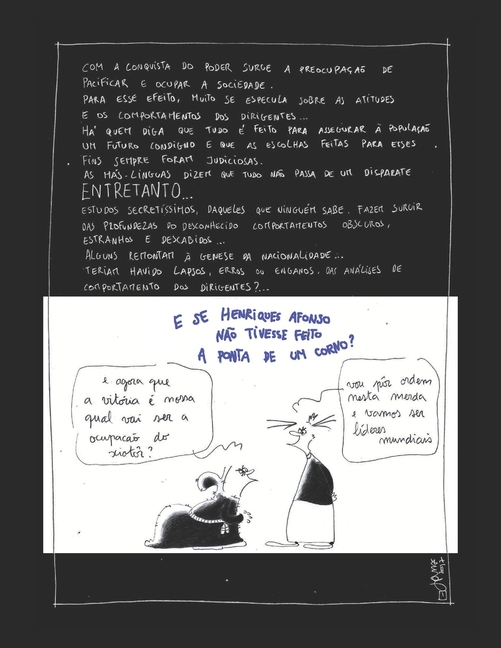 COM A CONQUISTA DO PODER SURGE A PREOCUPAÇÃO DE
PACIFICAR E OCUPAR A SOCIEDADE.
PARA ESSE EFEITO, MUITO SE ESPECULA SOBRE AS ATITUDES
E OS COMPORTAMENTOS DOS DIRIGENTES...
HÁ QUEM DIGA QUE TUDO É FEITO PARA ASSEGURAR À POPULAÇÃO
UM FUTURO CONDIGNO E QUE AS ESCOLHAS FEITAS PARA ESSES
FINS SEMPRE FORAM JUDICIOSAS.
AS MÁS-LINGUAS DIZEM QUE TUDO NÃO PASSA DE UM DISPARATE
ENTRETANTO...
ESTUDOS SECRETÍSSIMOS, DAQUELES QUE NINGUÉM SABE, FAZEM SURGIR
DAS PROFUNDEZAS DO DESCONHECIDO COMPORTAMENTOS OBSCUROS,
ESTRANHOS E DESCABIDOS...
ALGUNS REMONTAM À GENESE DA NACIONALIDADE...
TERIAM HAVIDO LAPSOS, ERROS OU ENGANOS, DAS ANÁLISES DE
COMPORTAMENTO DOS DIRIGENTES?...
E SE HENRIQUES AFONSO
NÃO TIVESSE FEITO
A PONTA DE UM CORNO?
e agora que
a vitória é nossa
qual vai ser a
ocupação do
xiotôr?
vou pôr ordem
nesta merda
e vamos ser
líderes
mundiais